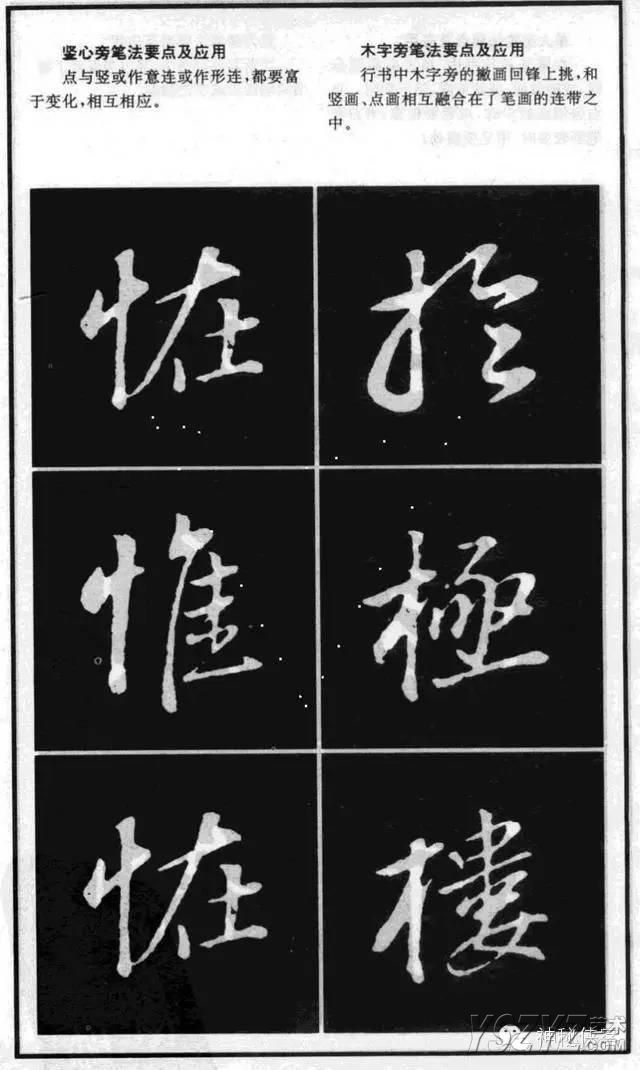 竖心旁笔法要点及应用
点与竖或作意连或作形连，都要富
于变化，相互相应。
木字旁笔法要点及应用
行书中木字旁的撇画回锋上挑，和
竖画、点画相互融合在了笔画的连带之
中。
恠
於
惟
極
恠
樓